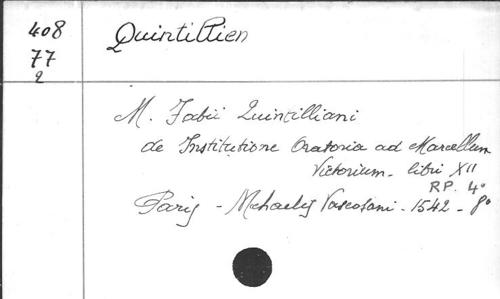 408
77
2
Quintillien
M. Fabii Quintilliani
de Institutione Oratoria ad Marcellum
Victorium - libri XII
RP. 4°
Paris - Michaelis Vascosani - 1542 - 8°